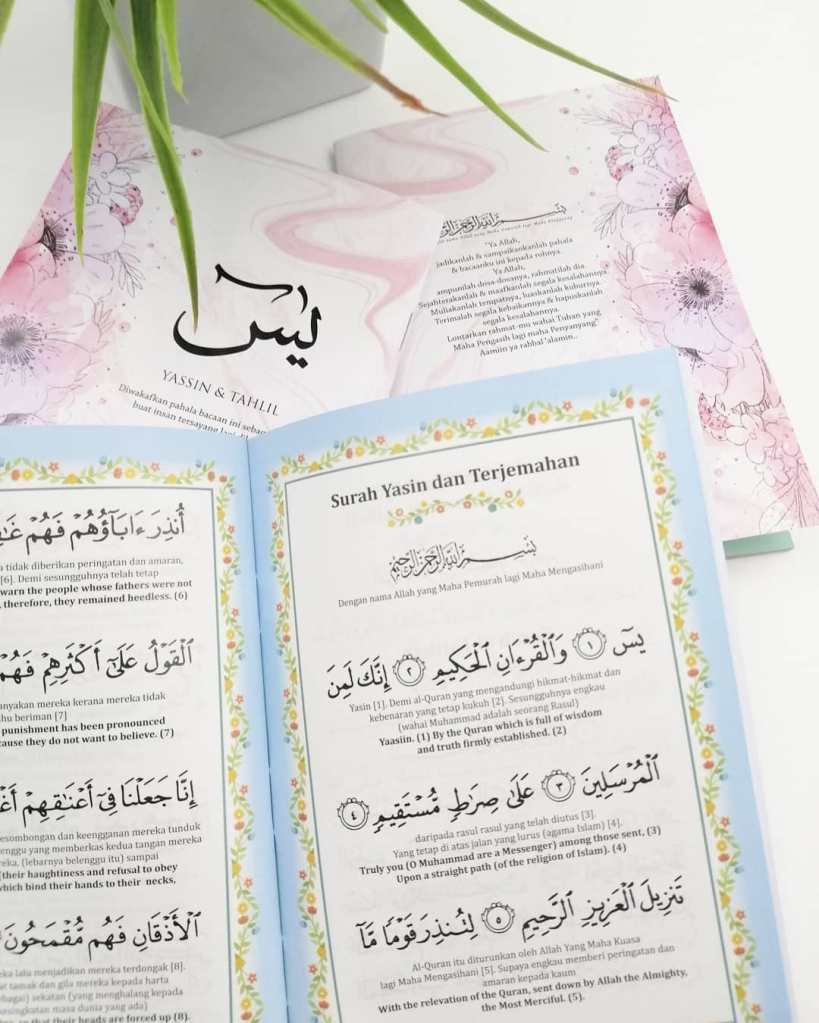 يس
YASSIN & TAHLIL
Diwakafkan pahala bacaan ini
buat insan tersayang
"Ya Allah,
jadikanlah & sampaikankanlah pahala
& bacaanku ini kepada rohnya.
Ya Allah,
ampunilah dosa-dosanya, rahmatilah dia.
Sejahterakanlah & maafkanlah segala kesalahannya
Muliakanlah tempatnya, luaskanlah kuburnya.
Terimalah segala kebaikannya & hapuskanlah
segala kesalahannya.
Lontarkan rahmat-mu wahai Tuhan yang
Maha Pengasih lagi maha Penyanyang"
Aamiin ya rabbal'alamin..
Surah Yasin dan Terjemahan
بِسْمِ اللَّهِ الرَّحْمَٰنِ الرَّحِيمِ
Dengan nama Allah yang Maha Pemurah lagi Maha Mengasihani
يسٓ ١ وَٱلْقُرْءَانِ ٱلْحَكِيمِ ٢ إِنَّكَ لَمِنَ
Yasin [1]. Demi al-Quran yang mengandungi hikmat-hikmat dan
kebenaran yang tetap kukuh [2]. Sesungguhnya engkau
(wahai Muhammad adalah seorang Rasul)
Yaasiin. (1) By the Quran which is full of wisdom
and truth firmly established. (2)
ٱلْمُرْسَلِينَ ٣ عَلَىٰ صِرَٰطٍ مُّسْتَقِيمٍ ٤
daripada rasul rasul yang telah diutus [3].
Yang tetap di atas jalan yang lurus (agama Islam) [4].
Truly you (O Muhammad are a Messenger) among those sent, (3)
Upon a straight path (of the religion of Islam). (4)
تَنزِيلَ ٱلْعَزِيزِ ٱلرَّحِيمِ ٥ لِتُنذِرَ قَوْمًا مَّآ
Al-Quran itu diturunkan oleh Allah Yang Maha Kuasa
lagi Maha Mengasihani [5]. Supaya engkau memberi peringatan dan
amaran kepada kaum
With the relevation of the Quran, sent down by Allah the Almighty,
the Most Merciful. (5).
أُنذِرَ ءَابَآؤُهُمْ فَهُمْ
tidak diberikan peringatan dan amaran,
[6]. Demi sesungguhnya telah tetap
warn the people whose fathers were not
therefore, they remained heedless. (6)
ٱلْقَوْلُ عَلَىٰٓ أَكْثَرِهِمْ فَهُمْ
mereka kerana mereka tidak
beriman [7]
punishment has been pronounced
they do not want to believe. (7)
إِنَّا جَعَلْنَا فِىٓ أَعْنَٰقِهِمْ
dan keengganan mereka tunduk
yang memberkas kedua tangan mereka
(lebarnya belenggu itu) sampai
their haughtiness and refusal to obey
which bind their hands to their necks,
ٱلْأَذْقَانِ فَهُم مُّقْمَحُونَ
lalu menjadikan mereka terdongak [8].
tamak dan gila mereka kepada harta
sekatan (yang menghalang kepada
masa dunia yang ada)
so that their heads are forced up (8).